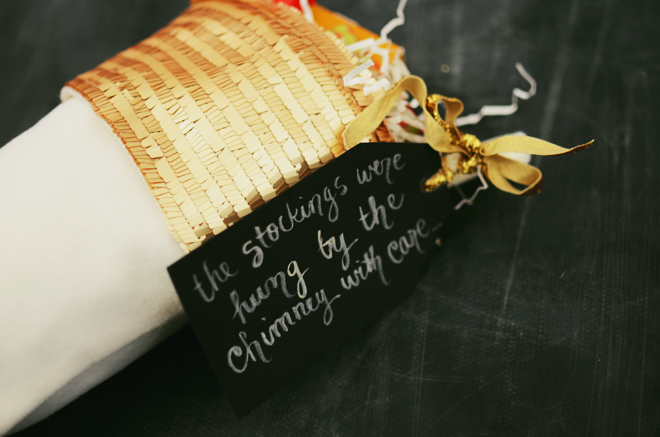 the stockings were
hung by the
chimney with care...